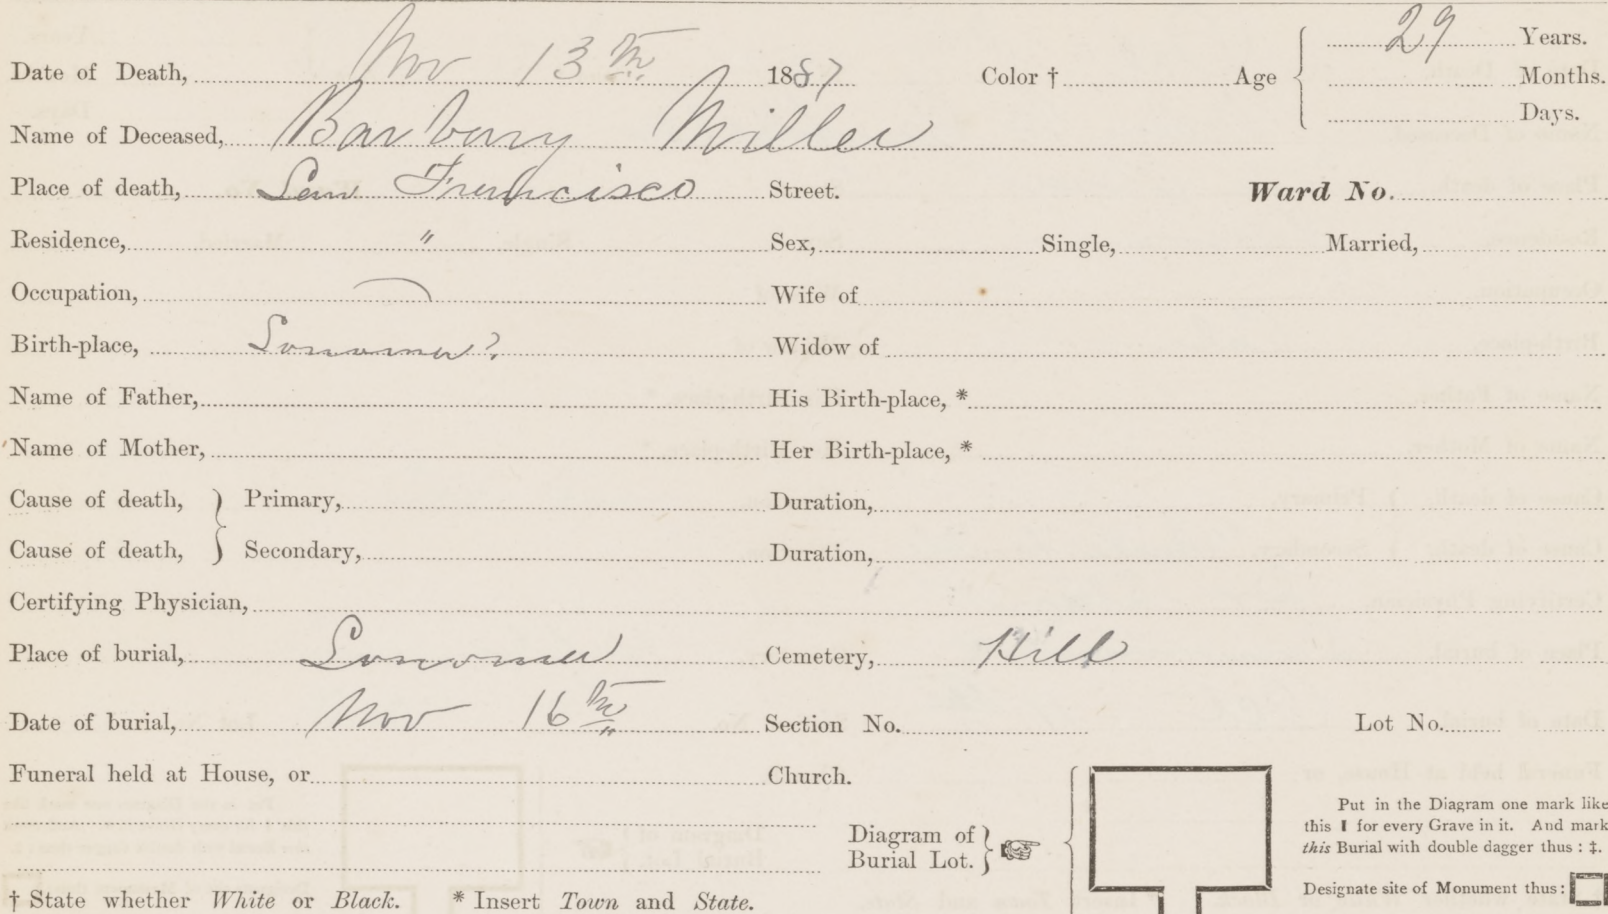 Date of Death, Nov 13th 1887 Color † Age 29 Years.
Months.
Days.
Name of Deceased, Barbary Miller
Place of death, San Francisco Street. Ward No.
Residence, " Sex, Single, Married,
Occupation, Wife of
Birth-place, Sonoma? Widow of
Name of Father, His Birth-place, *
Name of Mother, Her Birth-place, *
Cause of death, } Primary, Duration,
Cause of death, } Secondary, Duration,
Certifying Physician,
Place of burial, Sonoma Cemetery, Hill
Date of burial, Nov 16th Section No. Lot No.
Funeral held at House, or Church.
Diagram of
Burial Lot. }
Put in the Diagram one mark like
this I for every Grave in it. And mark
this Burial with double dagger thus : ‡.
Designate site of Monument thus :
† State whether White or Black. * Insert Town and State.